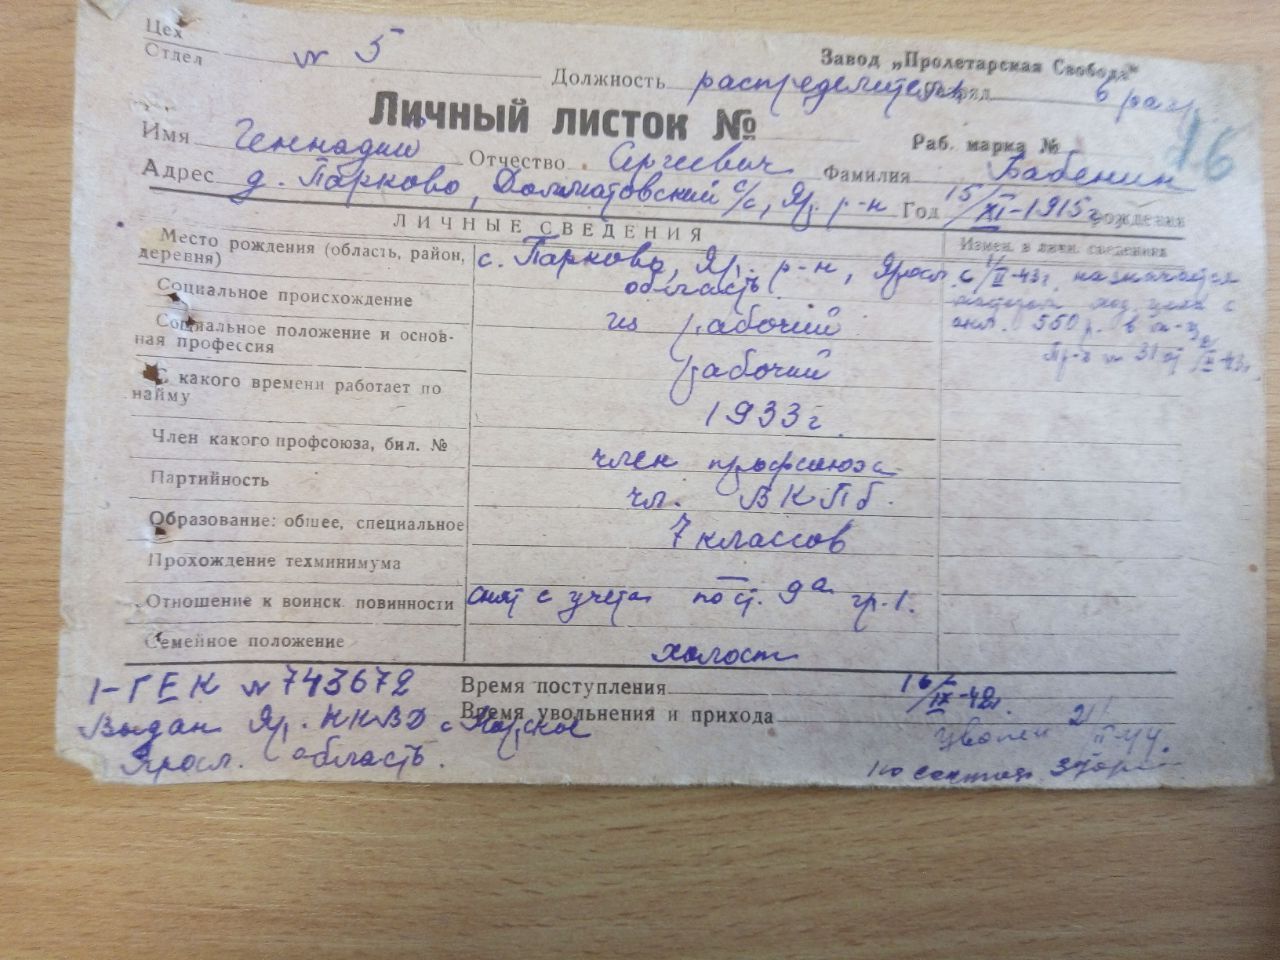 Цех
Отдел № 5
Завод „Пролетарская Свобода"
Должность распределитель Разряд 6 разр.
Личный листок №
Раб. марка № 26
Имя Геннадий Отчество Сергеевич Фамилия Бабенин
Адрес д. Парково, с/с, Яр. р-н Год 15/XI-1915 г рождения
ЛИЧНЫЕ СВЕДЕНИЯ
Измен. в личн. сведениях
Место рождения (область, район, деревня) с. Парково, Яр. р-н, Яросл. область.
с 1/II-43г. назначается
Социальное происхождение из рабочий
цеха с
окл. 550 р. в м-ц
Социальное положение и основная профессия рабочий
Пр-з № 31 от /II-43г.
С какого времени работает по найму 1933 г.
Член какого профсоюза, бил. № член профсоюза
Партийность чл. ВКПб.
Образование: общее, специальное 7 классов
Прохождение техминимума —
Отношение к воинск. повинности снят с учета по ст. 9а гр. 1.
Семейное положение холост
1-ГЕК № 743672
Выдан Яр. НКВД с
Яросл. область.
Время поступления 16/IX-42г.
Время увольнения и прихода уволен 21/
по